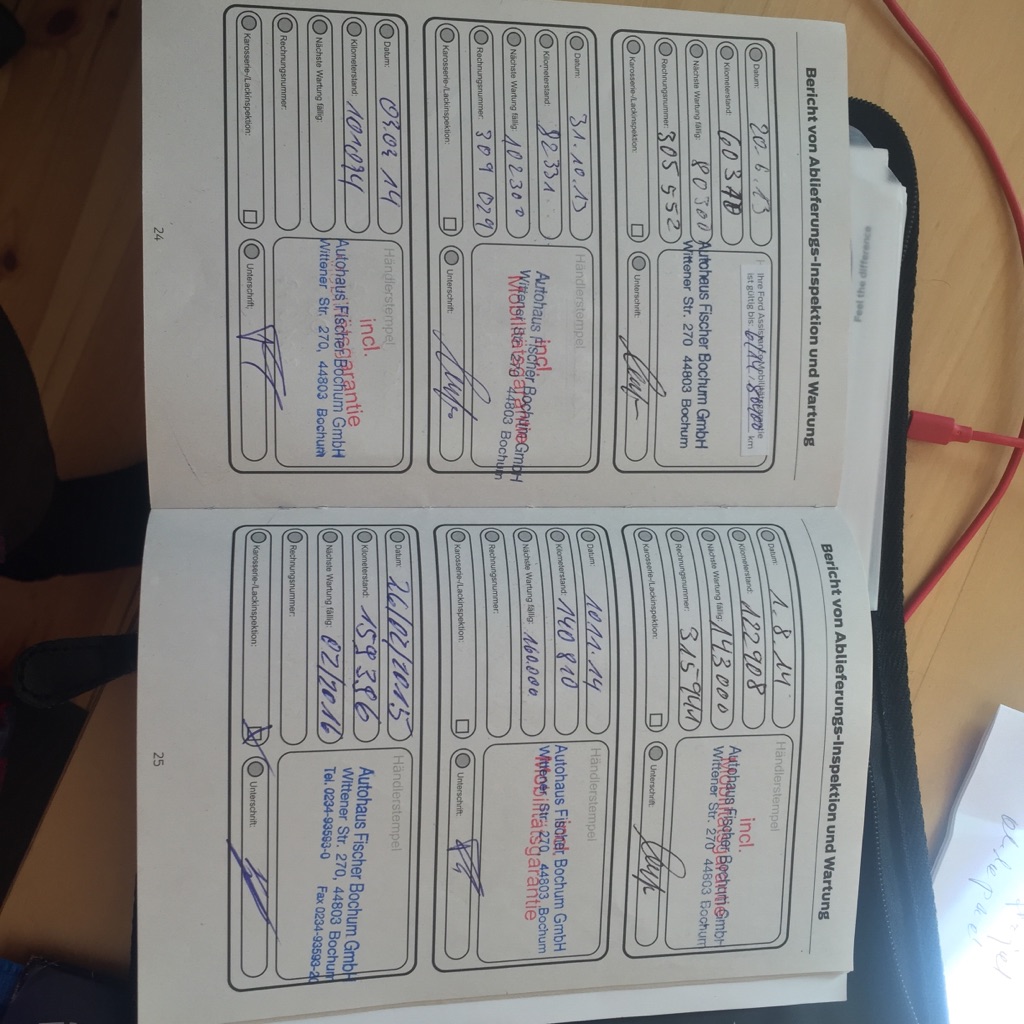 Bericht von Ablieferungs-Inspektion und Wartung
Datum: 20.6.13
Kilometerstand: 60370
Nächste Wartung fällig: 80300
Rechnungsnummer: 305 552
Karosserie-/Lackinspektion:
ist gültig bis: 6/14 km
Autohaus Fischer Bochum GmbH
Wittener Str. 270 44803 Bochum
Unterschrift:
Datum: 31.10.13
Kilometerstand: 82331
Nächste Wartung fällig: 102300
Rechnungsnummer: 309 029
Karosserie-/Lackinspektion:
Händlerstempel
incl.
Mobilitätsgarantie
Autohaus Fischer Bochum GmbH
Wittener Str. 270 44803 Bochum
Unterschrift:
Datum: 03.03.14
Kilometerstand: 101094
Nächste Wartung fällig:
Rechnungsnummer:
Karosserie-/Lackinspektion:
Händlerstempel
incl.
Mobilitätsgarantie
Autohaus Fischer Bochum GmbH
Wittener Str. 270, 44803 Bochum
Unterschrift:
24
Bericht von Ablieferungs-Inspektion und Wartung
Datum: 1.8.14
Kilometerstand: 122908
Nächste Wartung fällig: 143000
Rechnungsnummer: 315941
Karosserie-/Lackinspektion:
Händlerstempel
incl.
Mobilitätsgarantie
Autohaus Fischer Bochum GmbH
Wittener Str. 270 44803 Bochum
Unterschrift:
Datum: 10.11.14
Kilometerstand: 140 810
Nächste Wartung fällig: 160.000
Rechnungsnummer:
Karosserie-/Lackinspektion:
Händlerstempel
incl.
Mobilitätsgarantie
Autohaus Fischer Bochum GmbH
Wittener Str. 270, 44803 Bochum
Unterschrift:
Datum: 26/02/2015
Kilometerstand: 159386
Nächste Wartung fällig: 02/2016
Rechnungsnummer:
Karosserie-/Lackinspektion:
Händlerstempel
Autohaus Fischer Bochum GmbH
Wittener Str. 270, 44803 Bochum
Tel. 0234-93593-0 Fax 0234-93593-20
Unterschrift:
25
Feel the difference